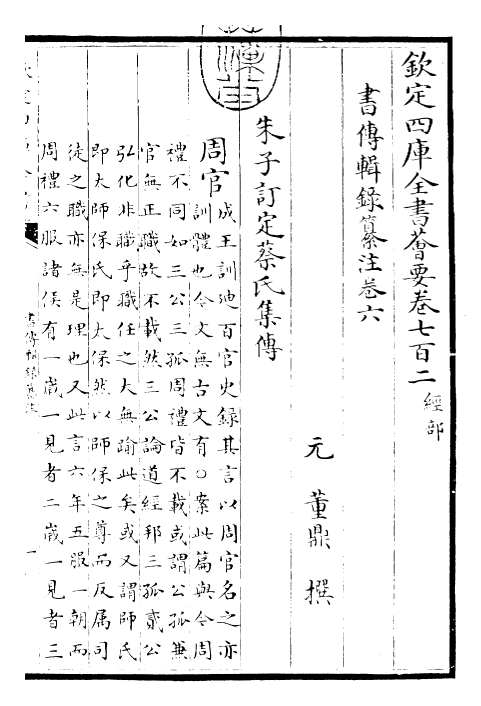 欽定四庫全書薈要卷七百二 經部
書傳輯錄纂注卷六
元 董鼎 撰
朱子訂定蔡氏集傳
周官
成王訓迪百官史録其言以周官名之亦
訓體也今文無古文有○案此篇與今周
禮不同如三公三孤周禮皆不載或謂公孤兼
官無正職故不載然三公論道經邦三孤貳公
弘化非職乎職任之大無踰此矣或又謂師氏
即太師保氏即太保然以師保之尊而反属司
徒之職亦無是理也又此言六年五服一朝而
周禮六服諸侯有一嵗一見者二嵗一見者三
書傳輯錄纂注
一